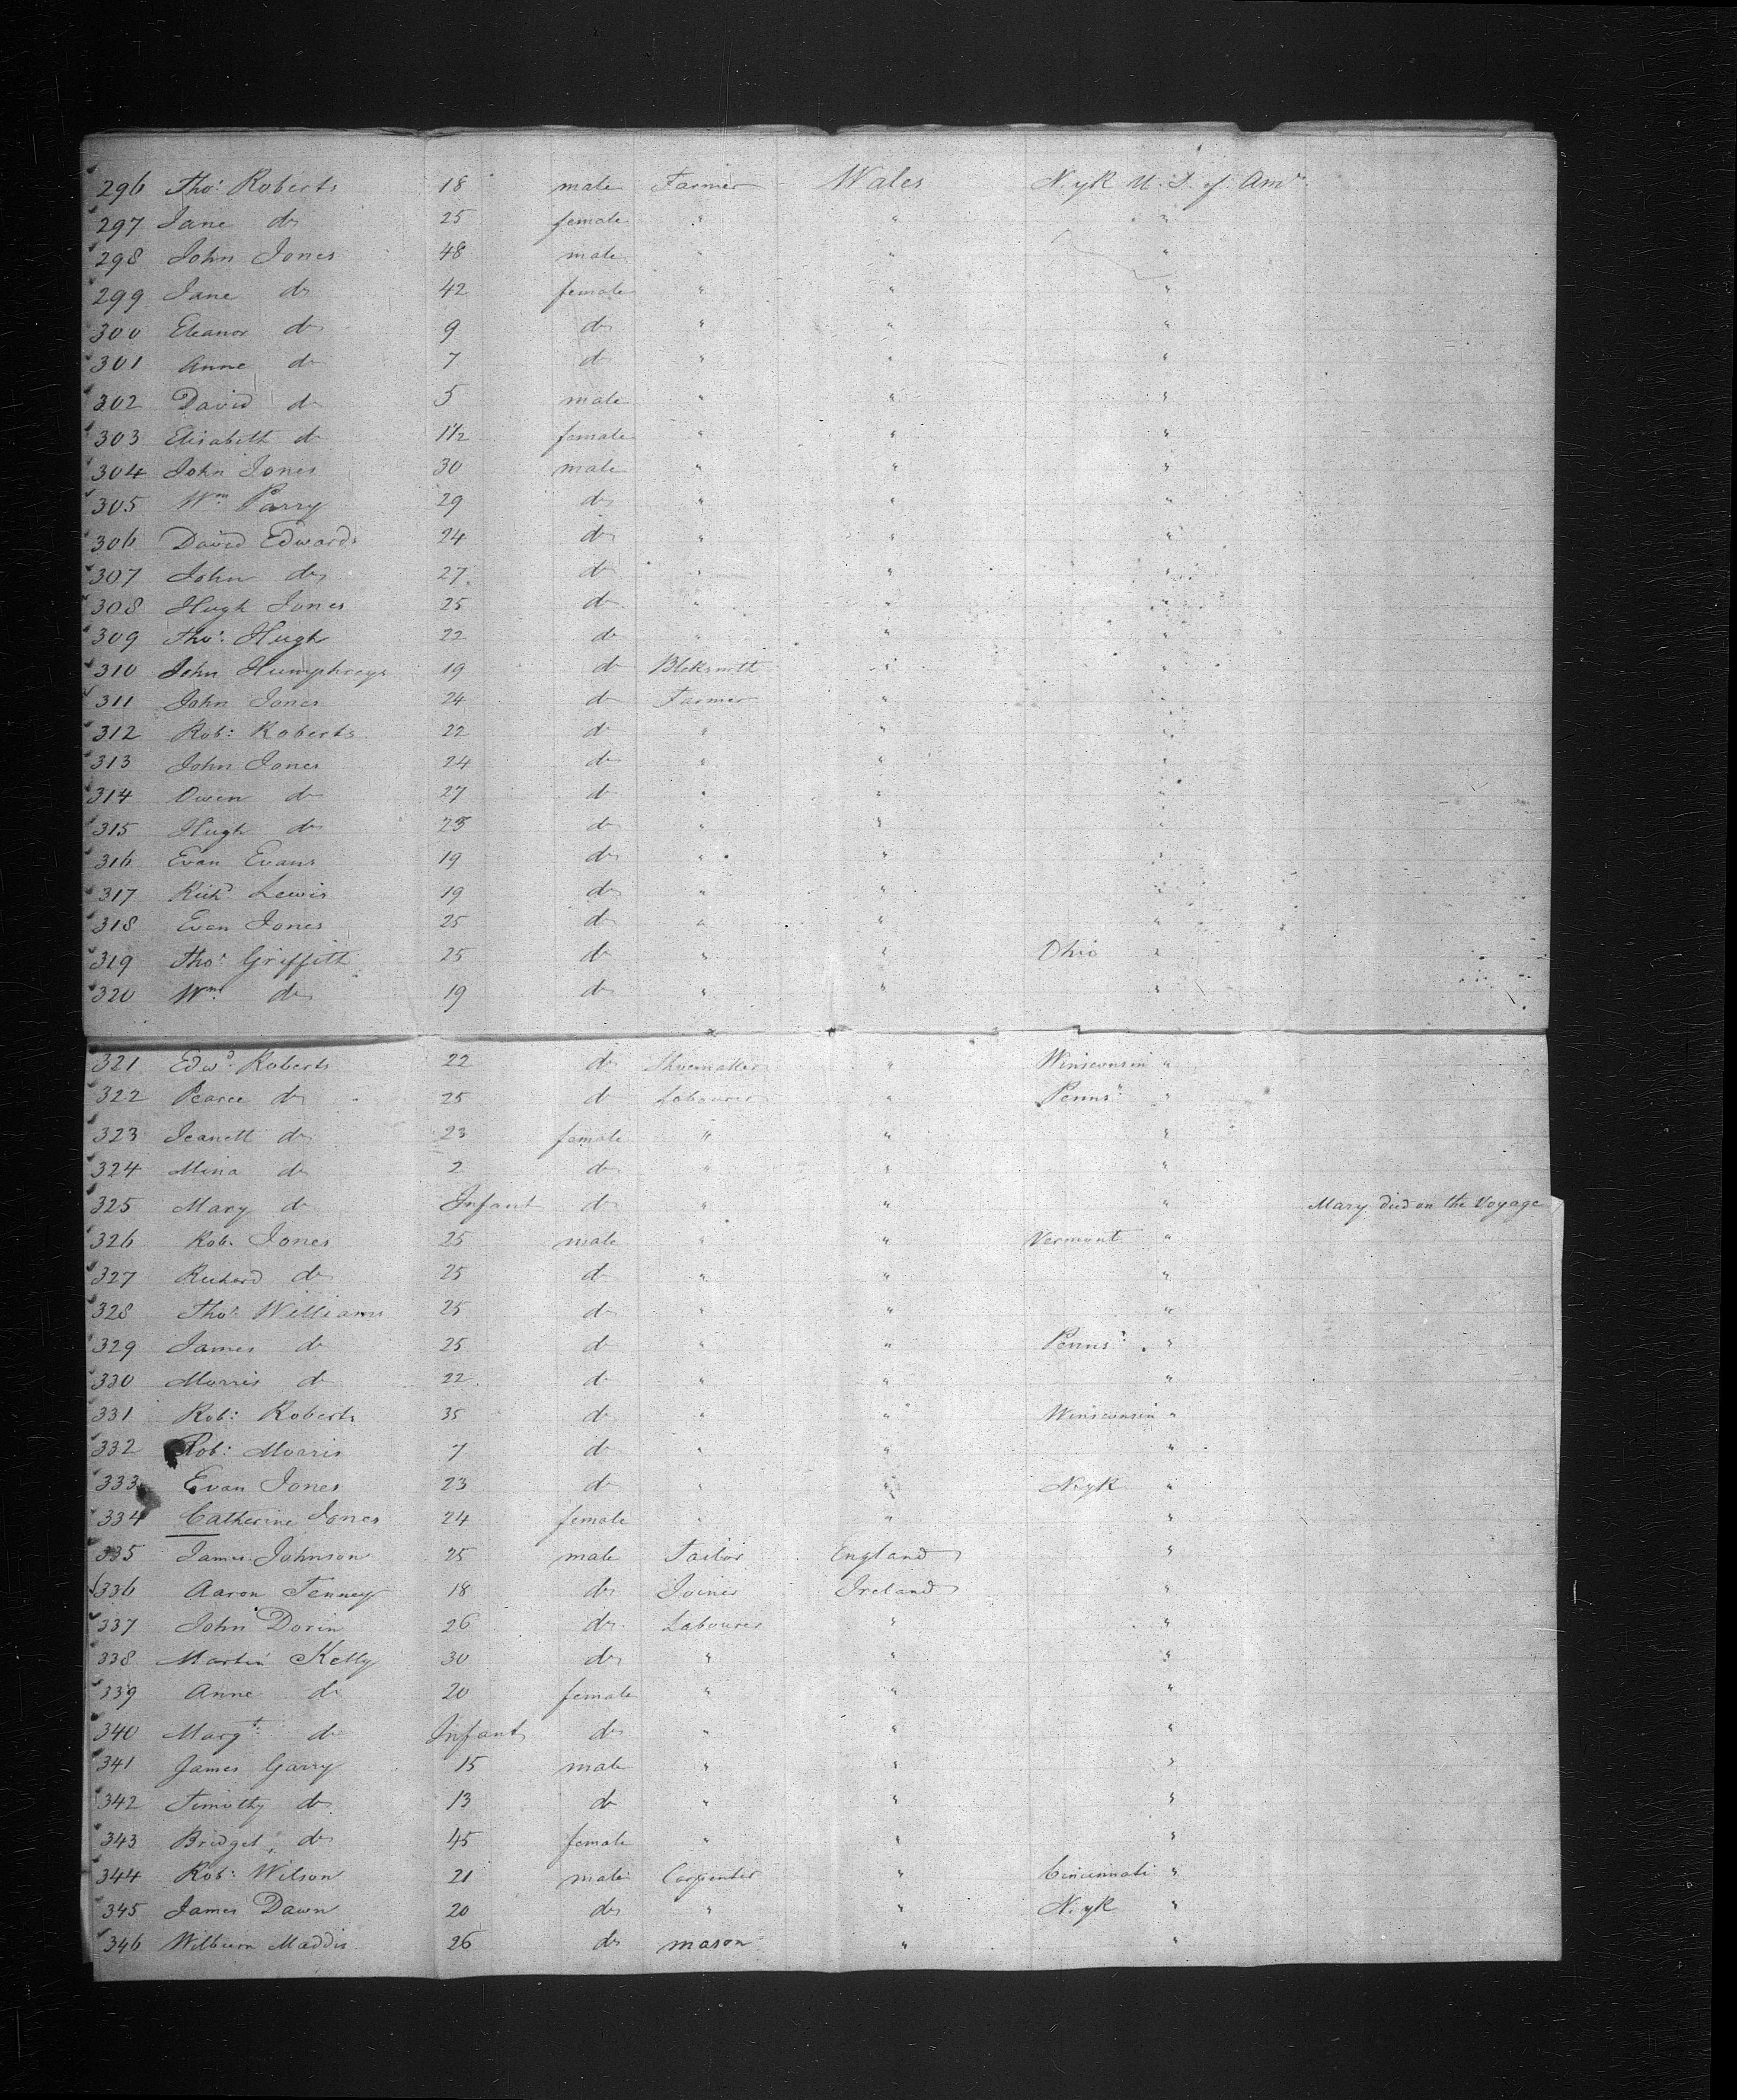 296 Tho.s Roberts 18 male Farmer Wales N.yk U. S. of Am.a
297 Jane do 25 female " " "
298 John Jones 48 male " " "
299 Jane do 42 female " " "
300 Eleanor do 9 do " " "
301 Anne do 7 do " " "
302 David do 5 male " " "
303 Elisabeth do 1½ female " " "
304 John Jones 30 male " " "
305 Wm Parry 29 do " " "
306 David Edwards 24 do " " "
307 John do 27 do " " "
308 Hugh Jones 25 do " " "
309 Tho.s Hugh 22 do " " "
310 John Humphreys 19 do Blcksmith " "
311 John Jones 24 do Farmer " "
312 Rob: Roberts 22 do " " "
313 John Jones 24 do " " "
314 Owen do 27 do " " "
315 Hugh do 23 do " " "
316 Evan Evans 19 do " " "
317 Rich.d Lewis 19 do " " "
318 Evan Jones 25 do " " "
319 Tho.s Griffith 25 do " " Ohio "
320 Wm do 19 do " " "
321 Edw.d Roberts 22 do Shoemaker " Winsconsin "
322 Pearce do 25 do Labourer " Penns.a "
323 Jeanett do 23 female " " "
324 Mina do 2 do " " "
325 Mary do Infant do " " " Mary died on the Voyage
326 Rob. Jones 25 male " " Vermont "
327 Richard do 25 do " " "
328 Tho.s Williams 25 do " " "
329 James do 25 do " " Penns.a "
330 Morris do 22 do " " "
331 Rob: Roberts 35 do " " Winsconsin "
332 Rob: Morris 7 do " " "
333 Evan Jones 23 do " " N.yk "
334 Catherine Jones 24 female " " "
335 James Johnson 25 male Tailor England "
336 Aaron Tenney 18 do Joiner Ireland "
337 John Dorin 26 do Labourer " "
338 Martin Kelly 30 do " " "
339 Anne do 20 female " " "
340 Marg.t do Infant do " " "
341 James Garry 15 male " " "
342 Timothy do 13 do " " "
343 Bridget do 45 female " " "
344 Rob: Wilson 21 male Carpenter " Cincinnati "
345 James Dawn 20 do " " N.yk "
346 Wilburn Maddis 26 do mason " "